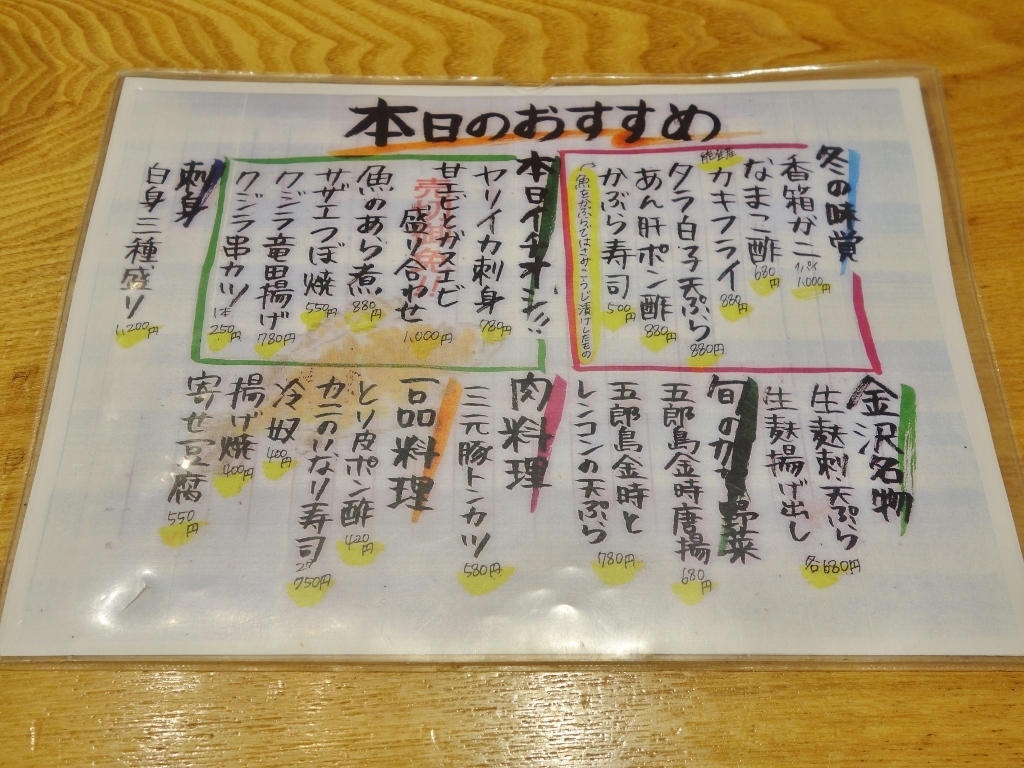 本日のおすすめ
冬の味覚
香箱ガニ 1パイ 1,000円
なまこ酢 680円
能登産
カキフライ 880円
タラ白子天ぷら 880円
あん肝ポン酢 880円
かぶら寿司 500円
魚をかぶらではさみこうじ漬けしたもの
本日イチオシ!!
ヤリイカ刺身 780円
甘エビとガスエビ
盛り合わせ 1,000円
売切御免!!
魚のあら煮 880円
サザエつぼ焼 550円
クジラ竜田揚げ 780円
クジラ串カツ 1本 250円
刺身
白身三種盛り 1,200円
金沢名物
生麩刺・天ぷら
生麩揚げ出し
各680円
旬のカガ野菜
五郎島金時唐揚 680円
五郎島金時と
レンコンの天ぷら 780円
肉料理
三元豚トンカツ 580円
一品料理
とり皮ポン酢 420円
カニのいなり寿司 2ケ 750円
冷奴 400円
揚げ焼 400円
寄せ豆腐 550円